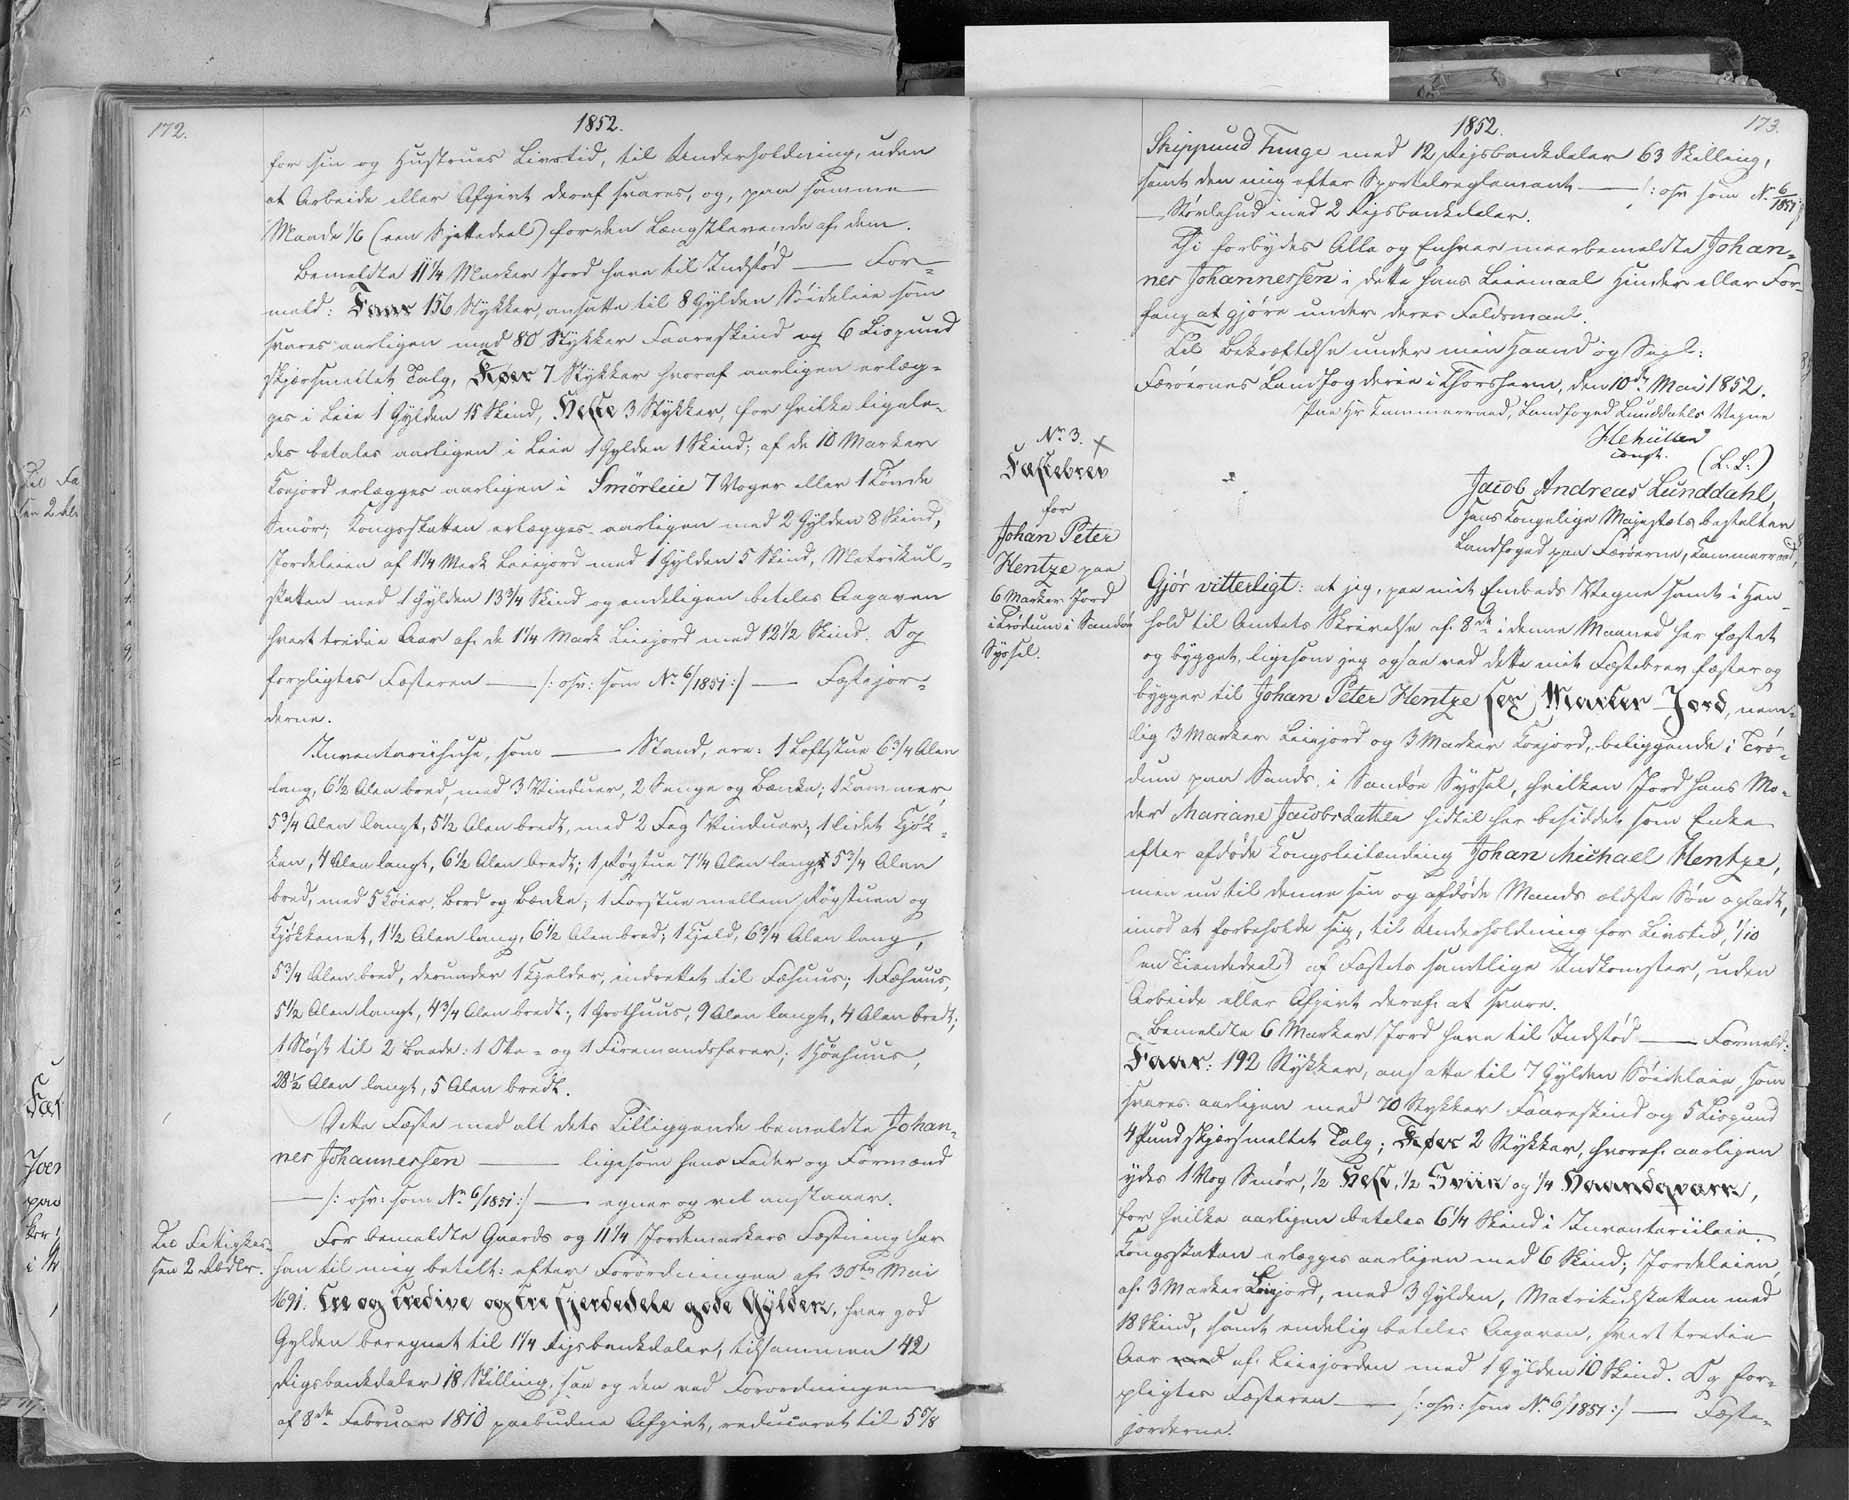 172.
1852.
for sin og Hustrues Livstid, til Underholdning, uden
at Arbeide eller Afgivt deraf svares, og, paa samme
Maade 1/6 (een Sjettedeel) for den Længstlevende af dem.
Bemeldte 11 1/4 Marker Jord have til Indstød — For-
meld: Faar 156 Stykker, ansatte til 8 Gylden Söideleie som
svares aarligen med 80 Stykker Faareskind og 6 Lispund
skjærsmeltet Talg, Køer 7 Stykker hvoraf aarligen erlæg-
ges i Leie 1 Gylden 15 Skind, Heste 3 Stykker, for hvilke ligele-
des betales aarligen i Leie 1 Gylden 1 Skind; af de 10 Marker
Koejord erlægges aarligen i Smörleie 7 Voger eller 1 Tönde
Smör; Kongsskatten erlægges aarligen med 2 Gylden 8 Skind,
Jordeleien af 1 1/4 Mark Leiejord med 1 Gylden 5 Skind, Matrikul-
skatten med 1 Gylden 13 3/4 Skind og endeligen betales Aagaven
hvert tredie Aar af de 1 1/4 Mark Leiejord med 12 1/2 Skind. Og
forpligtes Fæsteren — /: osv: som No 6/1851 :/ — Fæstejor-
derne.
Inventariihuse, som — Stand, ere: 1 Loftstue 6 3/4 Alen
lang, 6 1/2 Alen bred, med 3 Vinduer, 2 Senge og Bænke; 1 Kammer
5 3/4 Alen langt, 5 1/2 Alen bredt, med 2 Fag Vinduer; 1 lidet Kjök-
ken, 4 Alen langt, 6 1/2 Alen bredt; 1 Røgstue 7 1/4 Alen lang, 5 3/4 Alen
bred, med 5 Köier, Bord og Bænke; 1 Forstue mellem Røgstuen og
Kjökkenet, 1 1/2 Alen lang, 6 1/2 Alen bred; 1 Hjeld, 6 3/4 Alen lang,
5 3/4 Alen bred, derunder 1 Kjelder, indrettet til Fæhuus; 1 Fæhuus,
5 1/2 Alen langt, 4 3/4 Alen bredt; 1 Grothuus, 9 Alen langt, 4 Alen bredt;
1 Nöst til 2 Baade: 1 Otte- og 1 Firemandsfarer; 1 Höehuus,
28 1/2 Alen langt, 5 Alen bredt.
Dette Fæste med alt dets Tilliggende bemeldte Johan-
nes Johannessen — ligesom hans Fader og Formænd
— /: osv: som No 6/1851 :/ — egner og vel anstaaer.
Til Fattigkas-
sen 2 Rbdlr.
For bemeldte Gaards og 11 1/4 Jordemarkers Fæstning har
han til mig betalt: efter Forordningen af 30te Mai
1691. Tre og tredive og tre Fjerdedele gode Gylden, hver god
Gylden beregnet til 1 1/4 Rigsbankdaler, tilsammen 42
Rigsbankdaler 18 Skilling, saa og den ved Forordningen
af 8de Februar 1810 paabudne Afgivt, reduceret til 5 5/8
1852.
173.
Skippund Tunge med 12 Rigsbankdaler 63 Skilling,
samt den mig efter Sportelreglement — /: osv som No 6/1851 :/
— Störlehud med 2 Rigsbankdaler.
Thi forbydes Alle og Enhver meerbemeldte Johan-
nes Johannessen i dette hans Leiemaal Hinder eller For-
fang at gjöre under deres Faldsmaal.
Til Bekræftelse under min Haand og Segl:
Færöernes Landfogderie i Thorshavn, den 10de Mai 1852.
Paa Hr Kammerraad, Landfoged Lunddahls Vegne
const. (L. S.)
No 3. ×
Fæstebrev
for
Johan Peter
Hentze paa
6 Marker Jord
i Trödum i Sandöe
Syssel.
Jacob Andreas Lunddahl,
Hans Kongelige Majestæts bestalter
Landfoged paa Færöerne, Kammerraad,
Gjör vitterligt: at jeg, paa mit Embeds Vegne samt i Hen-
hold til Amtets Skrivelse af 8de i denne Maaned har fæstet
og bygget, ligesom jeg ogsaa ved dette mit Fæstebrev fæster og
bygger til Johan Peter Hentze sex Marker Jord, nem-
lig 3 Marker Leiejord og 3 Marker Koejord, beliggende i Trö-
dum paa Sands, i Sandöe Syssel, hvilken Jord hans Mo-
der Mariane Jacobsdatter hidtil har besiddet som Enke
efter afdöde Kongsleilænding Johan Michael Hentze,
men nu til denne sin og afdöde Mands ældste Sön opladt,
imod at forbeholde sig, til Underholdning for Livstid, 1/10
(en Tiendedeel) af Fæstets samtlige Indkomster, uden
Arbeide eller Afgivt deraf at svare.
Bemeldte 6 Marker Jord have til Indstød — Formeld:
Faar: 192 Stykker, ansatte til 7 Gylden Söideleie, som
svares aarligen med 70 Stykker Faareskind og 5 Lispund
4 Pund skjærsmeltet Talg; Køer 2 Stykker, hvoraf aarligen
ydes 1 Vog Smör, 1/2 Hest, 1/2 Sviin og 1/4 Haandqværn,
for hvilke aarligen betales 6 1/4 Skind i Inventariileie.
Kongsskatten erlægges aarligen med 6 Skind; Jordeleien
af 3 Marker Leiejord, med 3 Gylden, Matrikulskatten med
18 Skind, samt endelig betales Aagaven, hvert tredie
Aar af Leiejorden med 1 Gylden 10 Skind. Og for-
pligtes Fæsteren — /: osv: som No 6/1851 :/ — Fæste-
jorderne.